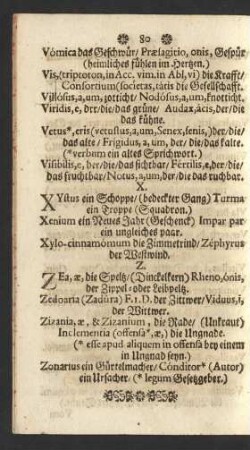 80
Vómica das Geschwür/ Præsagitio, onis, Gespür
(heimliches fühlen im Hertzen.)
Vis, (triptoton, in Acc. vim, in Abl, vi) die Krafft/
Consortium (societas, tatis die Gesellschafft.
Villósus, a, um, zotticht/ Nodósus, a, um, knotticht.
Viridis, e, der/ die/ das grüne/ Audax, ácis, der/ die
das kühne.
Vetus*, eris (vetustus, a, um, Senex, senis,) der/ die/
das alte/ Frigidus, a, um, der/ die/ das kalte.
(*verbum ein altes Sprichwort.)
Visibilis, e, der/ die/ das sichtbar/ Fertilis, e, der/ die/
das fruchtbar/ Notus, a, um, der/ die das ruchbar.
X.
XYstus ein Schoppe/ (bedeckter Gang) Turma
ein Troppe (Squadron.)
Xenium ein Neues Jahr (Geschenck) Impar par
ein ungleiches paar.
Xylo-cinnamómum die Zimmetrind/ Zéphyrus
der Westwind.
Z.
ZEa, æ, die Speltz/ (Dinckelkern) Rheno, ónis,
der Zippel- oder Leibpeltz.
Zedoaria (Zadura) F. 1. D. der Zittwer/ Viduus, i,
der Wittwer.
Zizania, æ, & Zizanium, die Rade/ (Unkraut)
Inclementia (offensa*, æ,) die Ungnade.
(* esse apud aliquem in offensa bey einem
in Ungnad seyn.)
Zonarius ein Gürtelmacher/ Cónditor* (Autor)
ein Ursacher/ (* legum Gesetzgeber.)